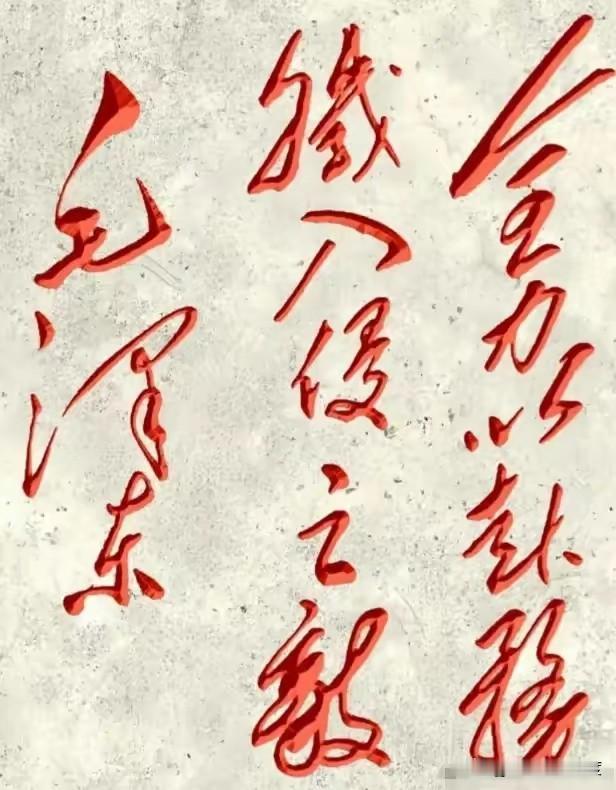 全力以赴務
殲入侵之敵
毛泽东